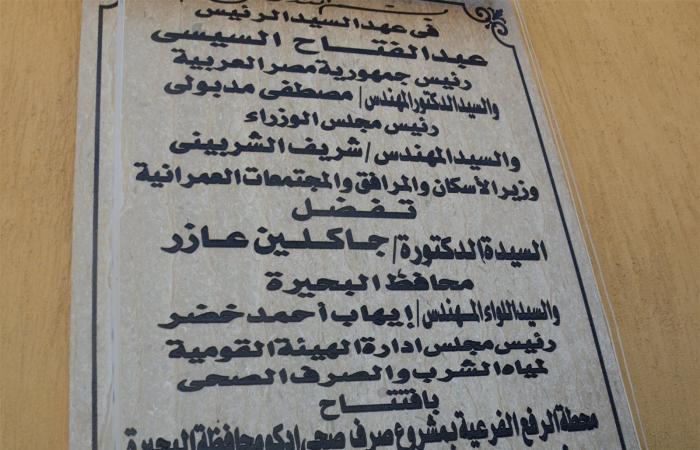 فى عهد السيد الرئيس
عبد الفتاح السيسى
رئيس جمهورية مصر العربية
والسيد الدكتور المهندس/ مصطفى مدبولى
رئيس مجلس الوزراء
والسيد المهندس / شريف الشربينى
وزير الأسكان والمرافق والمجتمعات العمرانية
تفضل
السيدة الدكتورة/ جاكلين عازر
محافظ البحيرة
والسيد اللواء المهندس/ إيهاب أحمد خضر
رئيس مجلس ادارة الهيئة القومية
لمياه الشرب والصرف الصحى
بافتتاح
محطة الرفع الفرعية بمشروع صرف صحى ادكو محافظة البحيرة